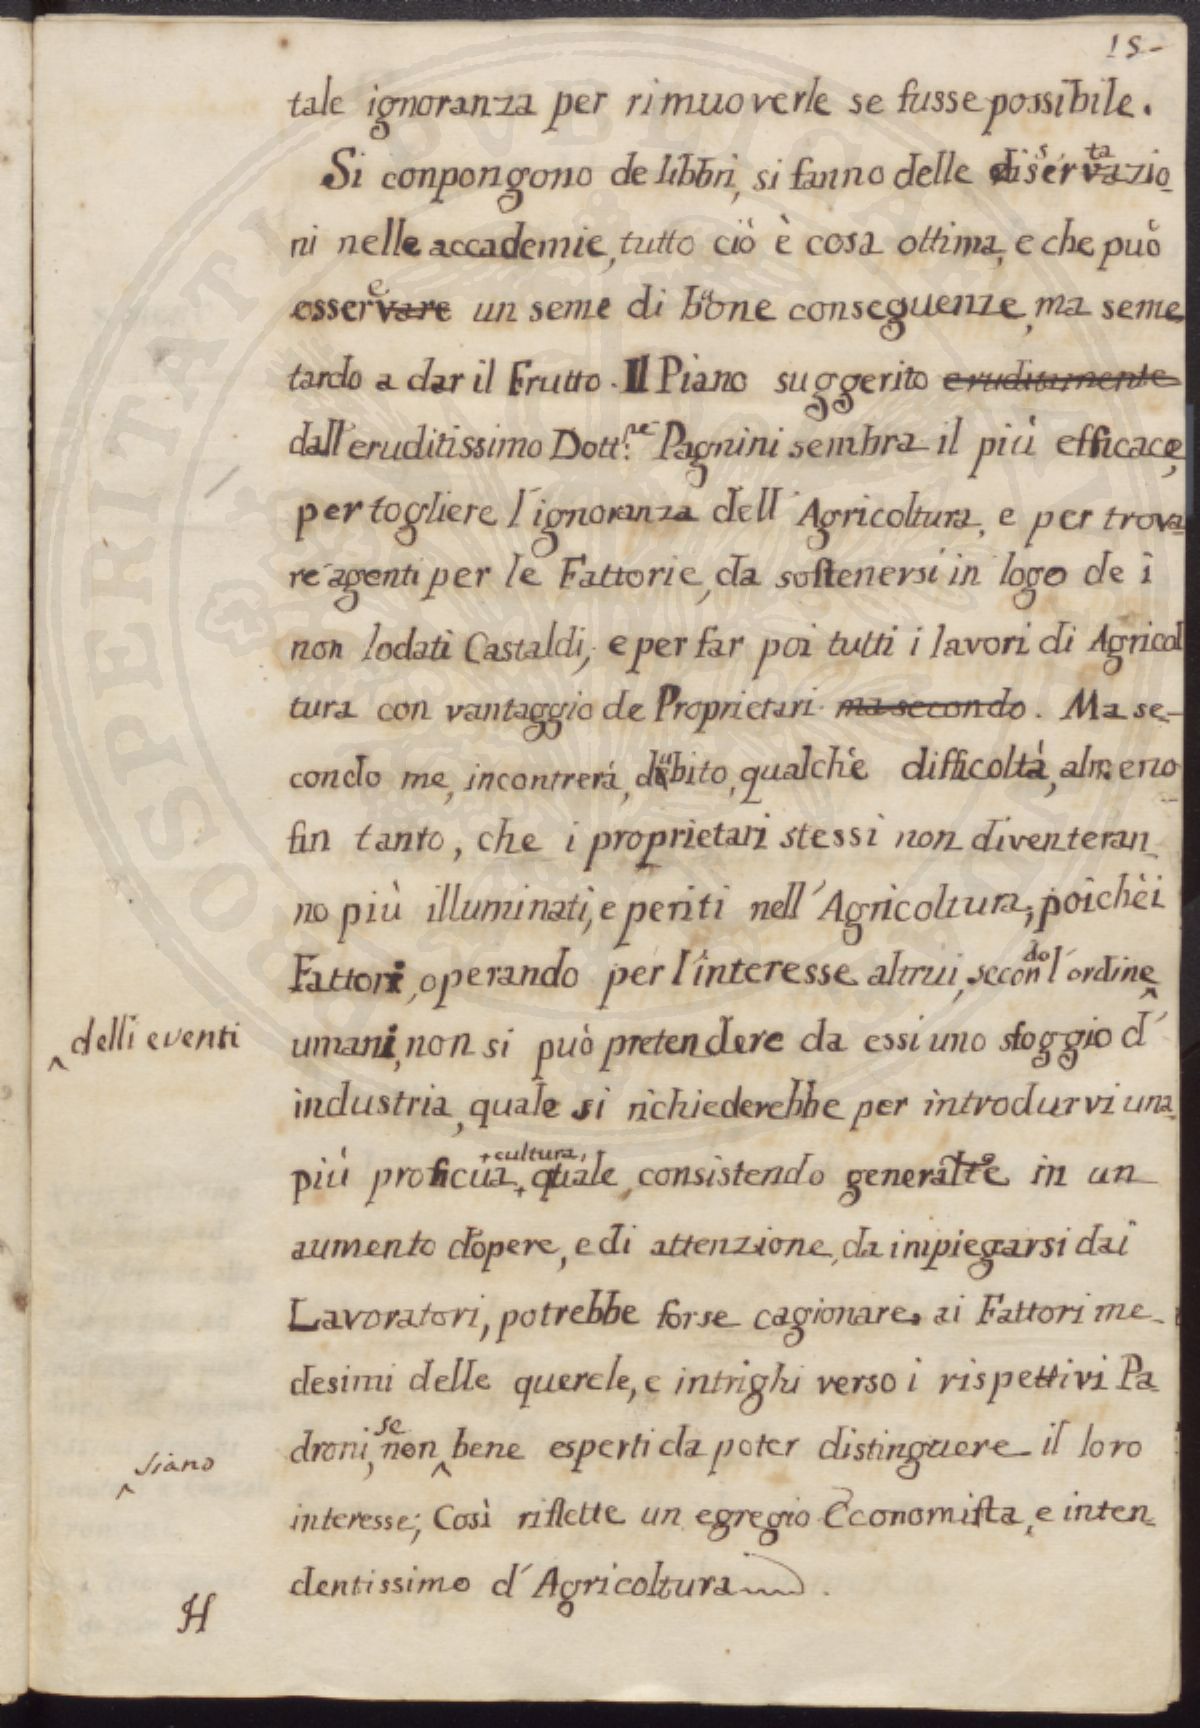 15-
tale ignoranza per rimuoverle se fusse possibile.
Si conpongono de libbri, si fanno delle dissertazio-
ni nelle accademie, tutto ciò è cosa ottima, e che può
esser~~vare~~e un seme di buone conseguenze, ma seme
tardo a dar il Frutto. Il Piano suggerito ~~eruditamente~~
dall'eruditissimo Dott.re Pagnini sembra il più efficace,
per togliere l'ignoranza dell'Agricoltura, e per trova-
re agenti per le Fattorie, da sostenersi in logo de i
non lodati Castaldi, e per far poi tutti i lavori di Agricol
tura con vantaggio de Proprietari ~~ma secondo~~. Ma se-
condo me, incontrerà, dubito, qualchè difficoltà, almeno
fin tanto, che i proprietari stessi non diventeran-
no più illuminati, e periti nell'Agricoltura; poichè i
Fattori, operando per l'interesse altrui, secondo l'ordine ^
^ delli eventi
umani, non si può pretendere da essi uno sfoggio d'
industria, quale si richiederebbe per introdurvi una
più proficua + cultura, + quale, consistendo generalte in un
aumento d'opere, e di attenzione, da impiegarsi dai
Lavoratori, potrebbe forse cagionare ai Fattori me-
desimi delle querele, e intrighi verso i rispettivi Pa-
droni, se non ^ bene esperti da poter distinguere il loro
^ siano
interesse; Così riflette un egregio Economista, e inten-
dentissimo d'Agricoltura.
H
PROSPERITATI PUBLICAE